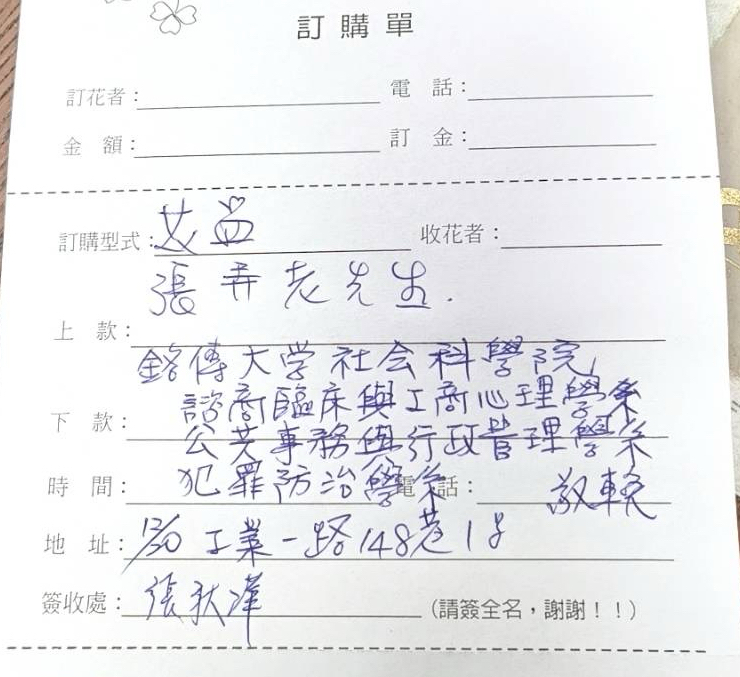 訂購單
訂花者： 電 話：
金 額： 訂 金：
訂購型式： 收花者：
張弄老先生.
上 款：
銘傳大学社会科學院,
諮商臨床與工商心理學系
下 款：
公共事務與行政管理學系
時 間： 犯罪防治學系 電 話： 敬輓
地 址：12/20 工業一路148巷1号
簽收處：張秋 (請簽全名，謝謝！！)